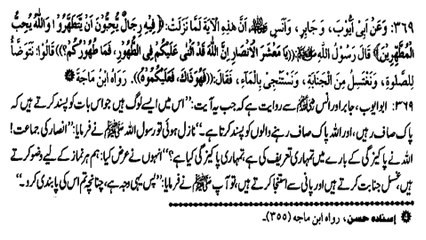 ٣٦٩: وَعَنْ أَبِي أَيُّوبَ، وَجَابِرٍ، وَأَنَسٍ ﷺ أَنَّ هٰذِهِ الْآيَةَ لَمَّا نَزَلَتْ: ﴿فِيهِ رِجَالٌ يُحِبُّونَ أَنْ يَتَطَهَّرُوا وَاللّٰهُ يُحِبُّ
الْمُطَّهِّرِينَ﴾ قَالَ رَسُولُ اللّٰهِ ﷺ: ((يَا مَعْشَرَ الْأَنْصَارِ إِنَّ اللّٰهَ قَدْ أَثْنَى عَلَيْكُمْ فِي الطُّهُورِ، فَمَا طُهُورُكُمْ؟)) قَالُوا: نَتَوَضَّأُ
لِلصَّلَوةِ، وَنَغْتَسِلُ مِنَ الْجَنَابَةِ، وَنَسْتَنْجِي بِالْمَاءِ، فَقَالَ: ((فَهُوَ ذَاكَ، فَعَلَيْكُمُوهُ)). رَوَاهُ ابْنُ مَاجَةَ ❁
٣٦٩: ابوایوب، جابر اور انس سے روایت ہے کہ جب یہ آیت: ”اس میں ایسے لوگ ہیں جو اس بات کو پسند کرتے ہیں کہ
پاک صاف رہیں، اور اللہ پاک صاف رہنے والوں کو پسند کرتا ہے۔“ نازل ہوئی تو رسول اللہ ﷺ نے فرمایا: ”انصار کی جماعت!
اللہ نے پاکیزگی کے بارے میں تمہاری تعریف کی ہے، تمہاری پاکیزگی کیا ہے؟“ انہوں نے عرض کیا: ہم ہر نماز کے لیے وضو کرتے
ہیں، غسل جنابت کرتے ہیں اور پانی سے استنجا کرتے ہیں، تو آپ ﷺ نے فرمایا: ”پس یہی وجہ ہے، چنانچہ تم اس کی پابندی کرو۔“
❁ إسناده حسن، رواه ابن ماجه (٣٥٥)۔